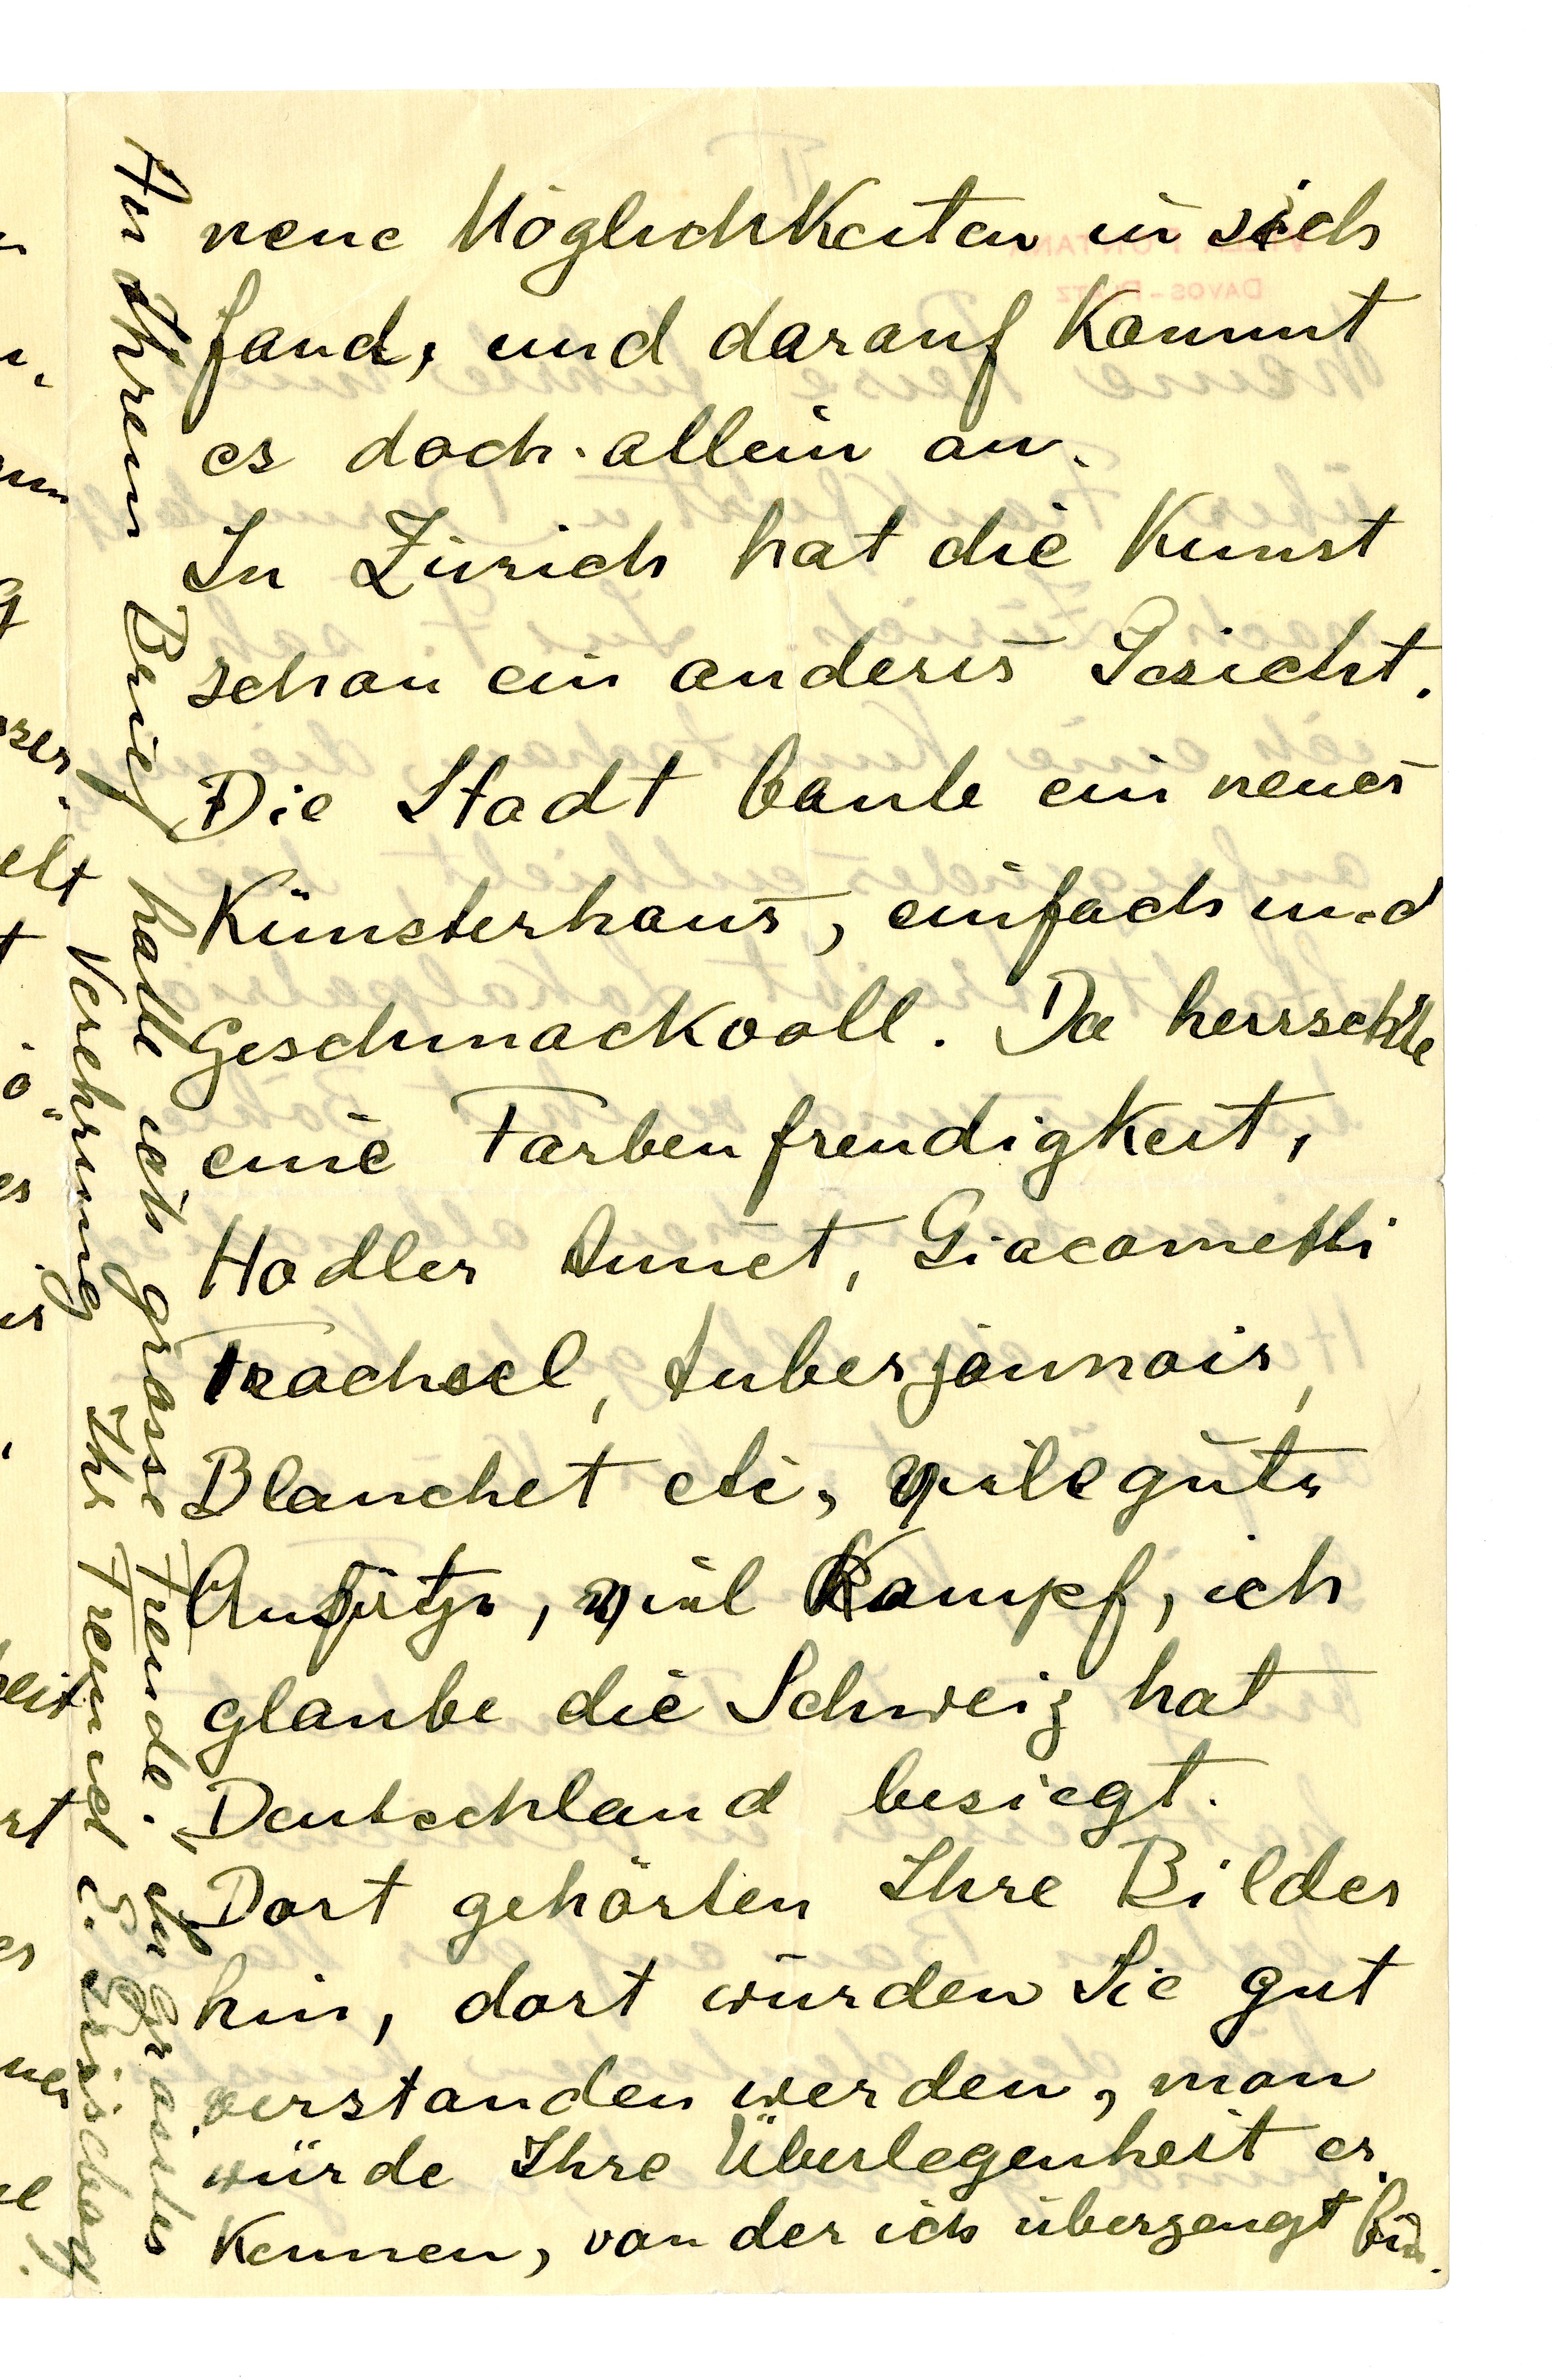 neue Möglichkeiten in sich
fand, und darauf kommt
es doch allein an.
In Zürich hat die Kunst
schon ein anderes Gesicht.
Die Stadt baute ein neues
Künsterhaus, einfach und
geschmackvoll. Da herrschte
eine Farbenfreudigkeit,
Hodler Amiet, Giacometti
Trachsel, Auberjounois,
Blanchet etc, viele gute
Ansätze, viel Kampf, ich
glaube die Schweiz hat
Deutschland besiegt.
Dort gehörten Ihre Bilder
hin, dort würden Sie gut
verstanden werden, man
würde Ihre Überlegenheit er
kennen, von der ich überzeugt bin.
An Ihrem Brief hatte ich grosse Freude. In Grosser
Verehrung Ihr Freund E.